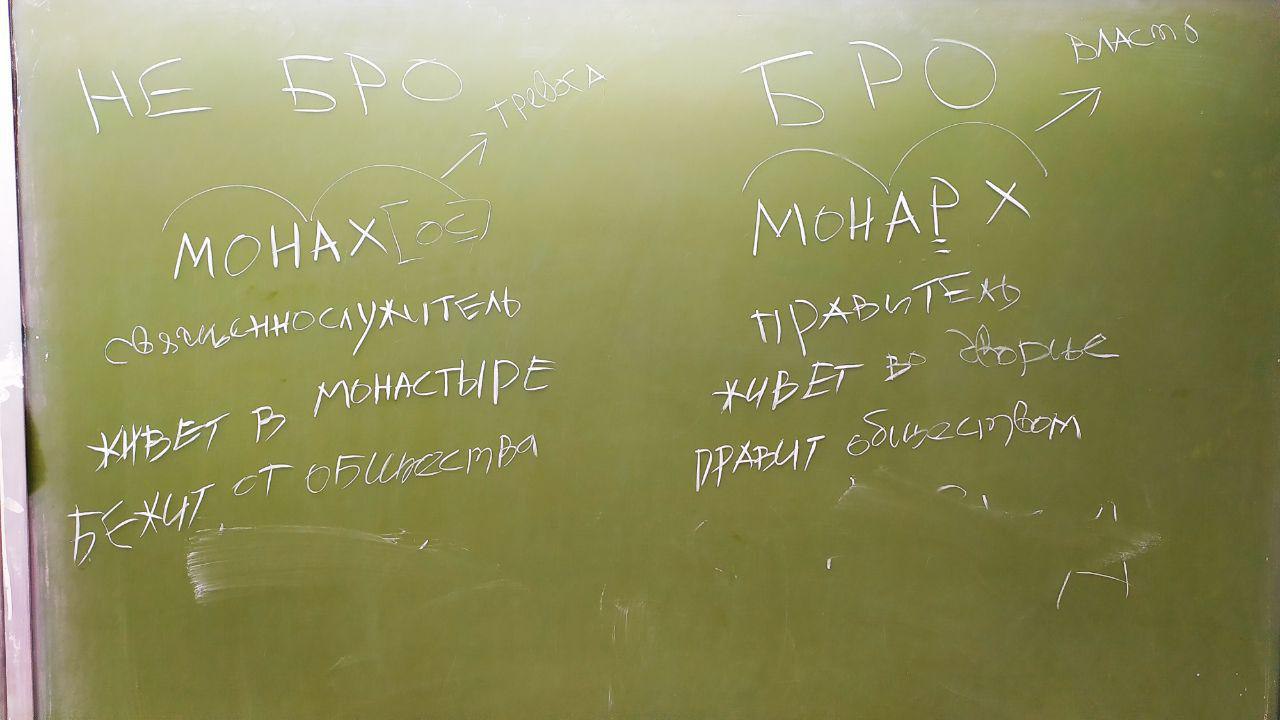 НЕ БРО
тревога
МОНАХ[ОС]
священнослужитель
ЖИВЕТ В МОНАСТЫРЕ
БЕЖИТ ОТ ОБЩЕСТВА
БРО
ВЛАСТЬ
МОНАРХ
ПРАВИТЕЛЬ
ЖИВЕТ во дворце
ПРАВИТ обществом